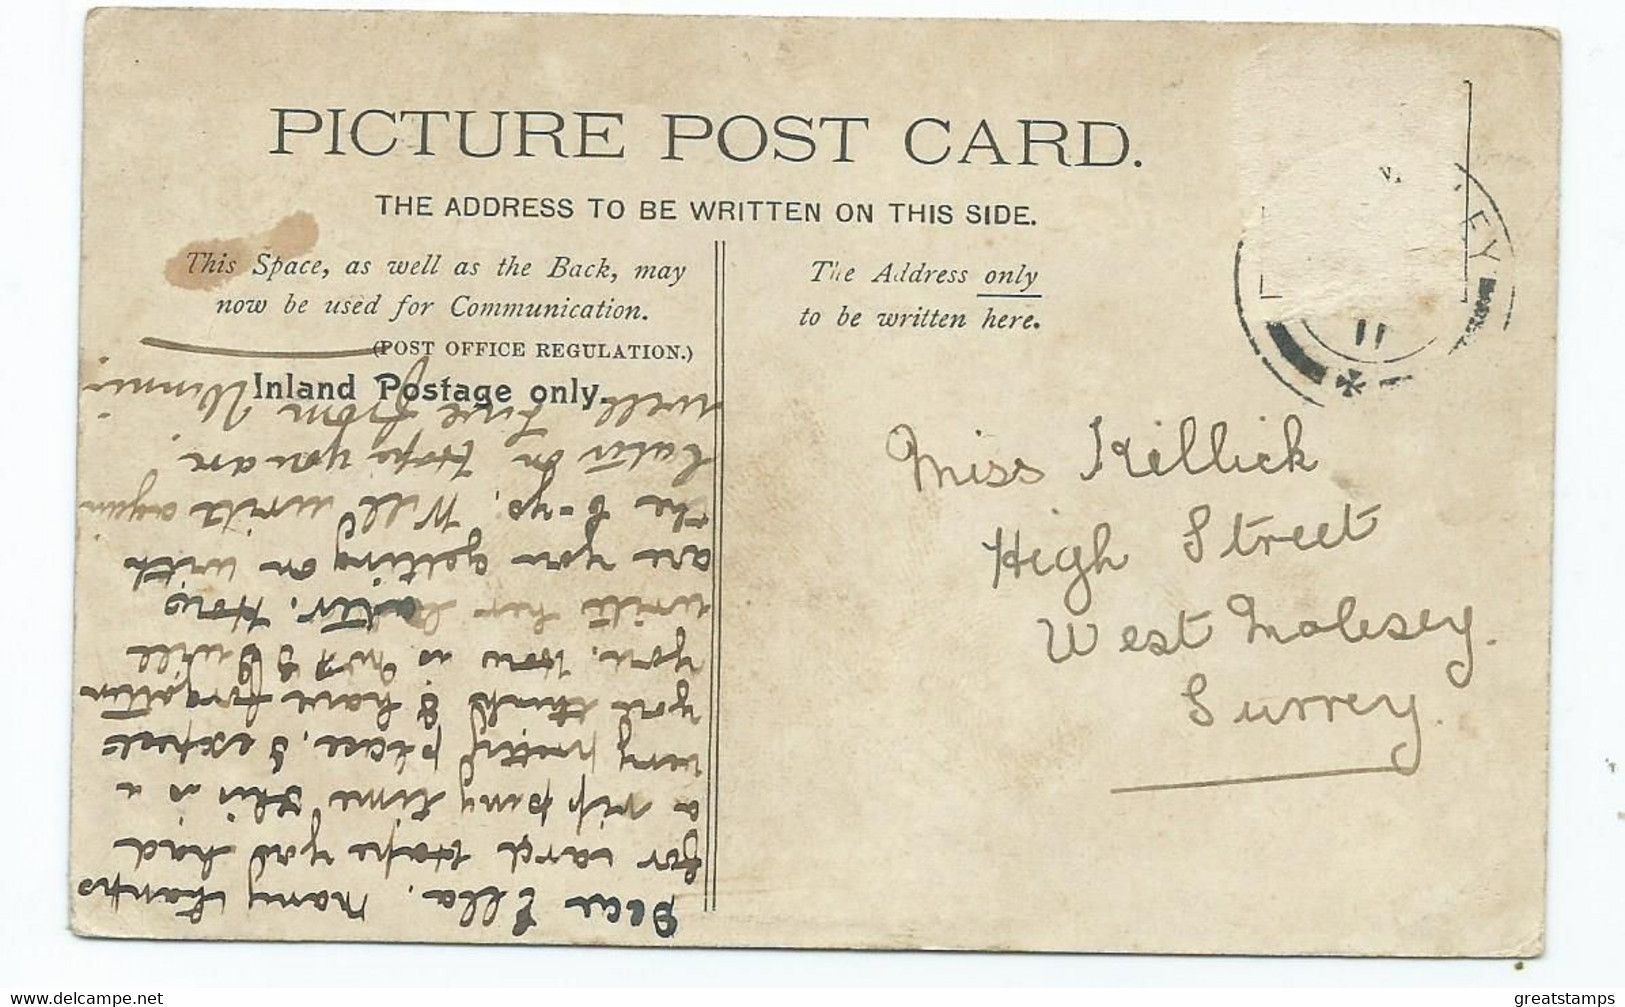 PICTURE POST CARD.
THE ADDRESS TO BE WRITTEN ON THIS SIDE.
This Space, as well as the Back, may
now be used for Communication.
(POST OFFICE REGULATION.)
Inland Postage only.
The Address only
to be written here.
EY
11
Miss Killick
High Street
West Molesey.
Surrey.
Dear Ella. Many thanks
for card Hope you had
a ripping time this is a
very pretty place. I expect
you think I have forgotten
you. How is I will
write her later. How
are you getting on with
the b-ys. Will write again
later on. Hope you are
well love from Winnie
greatstamps
www.delcampe.net